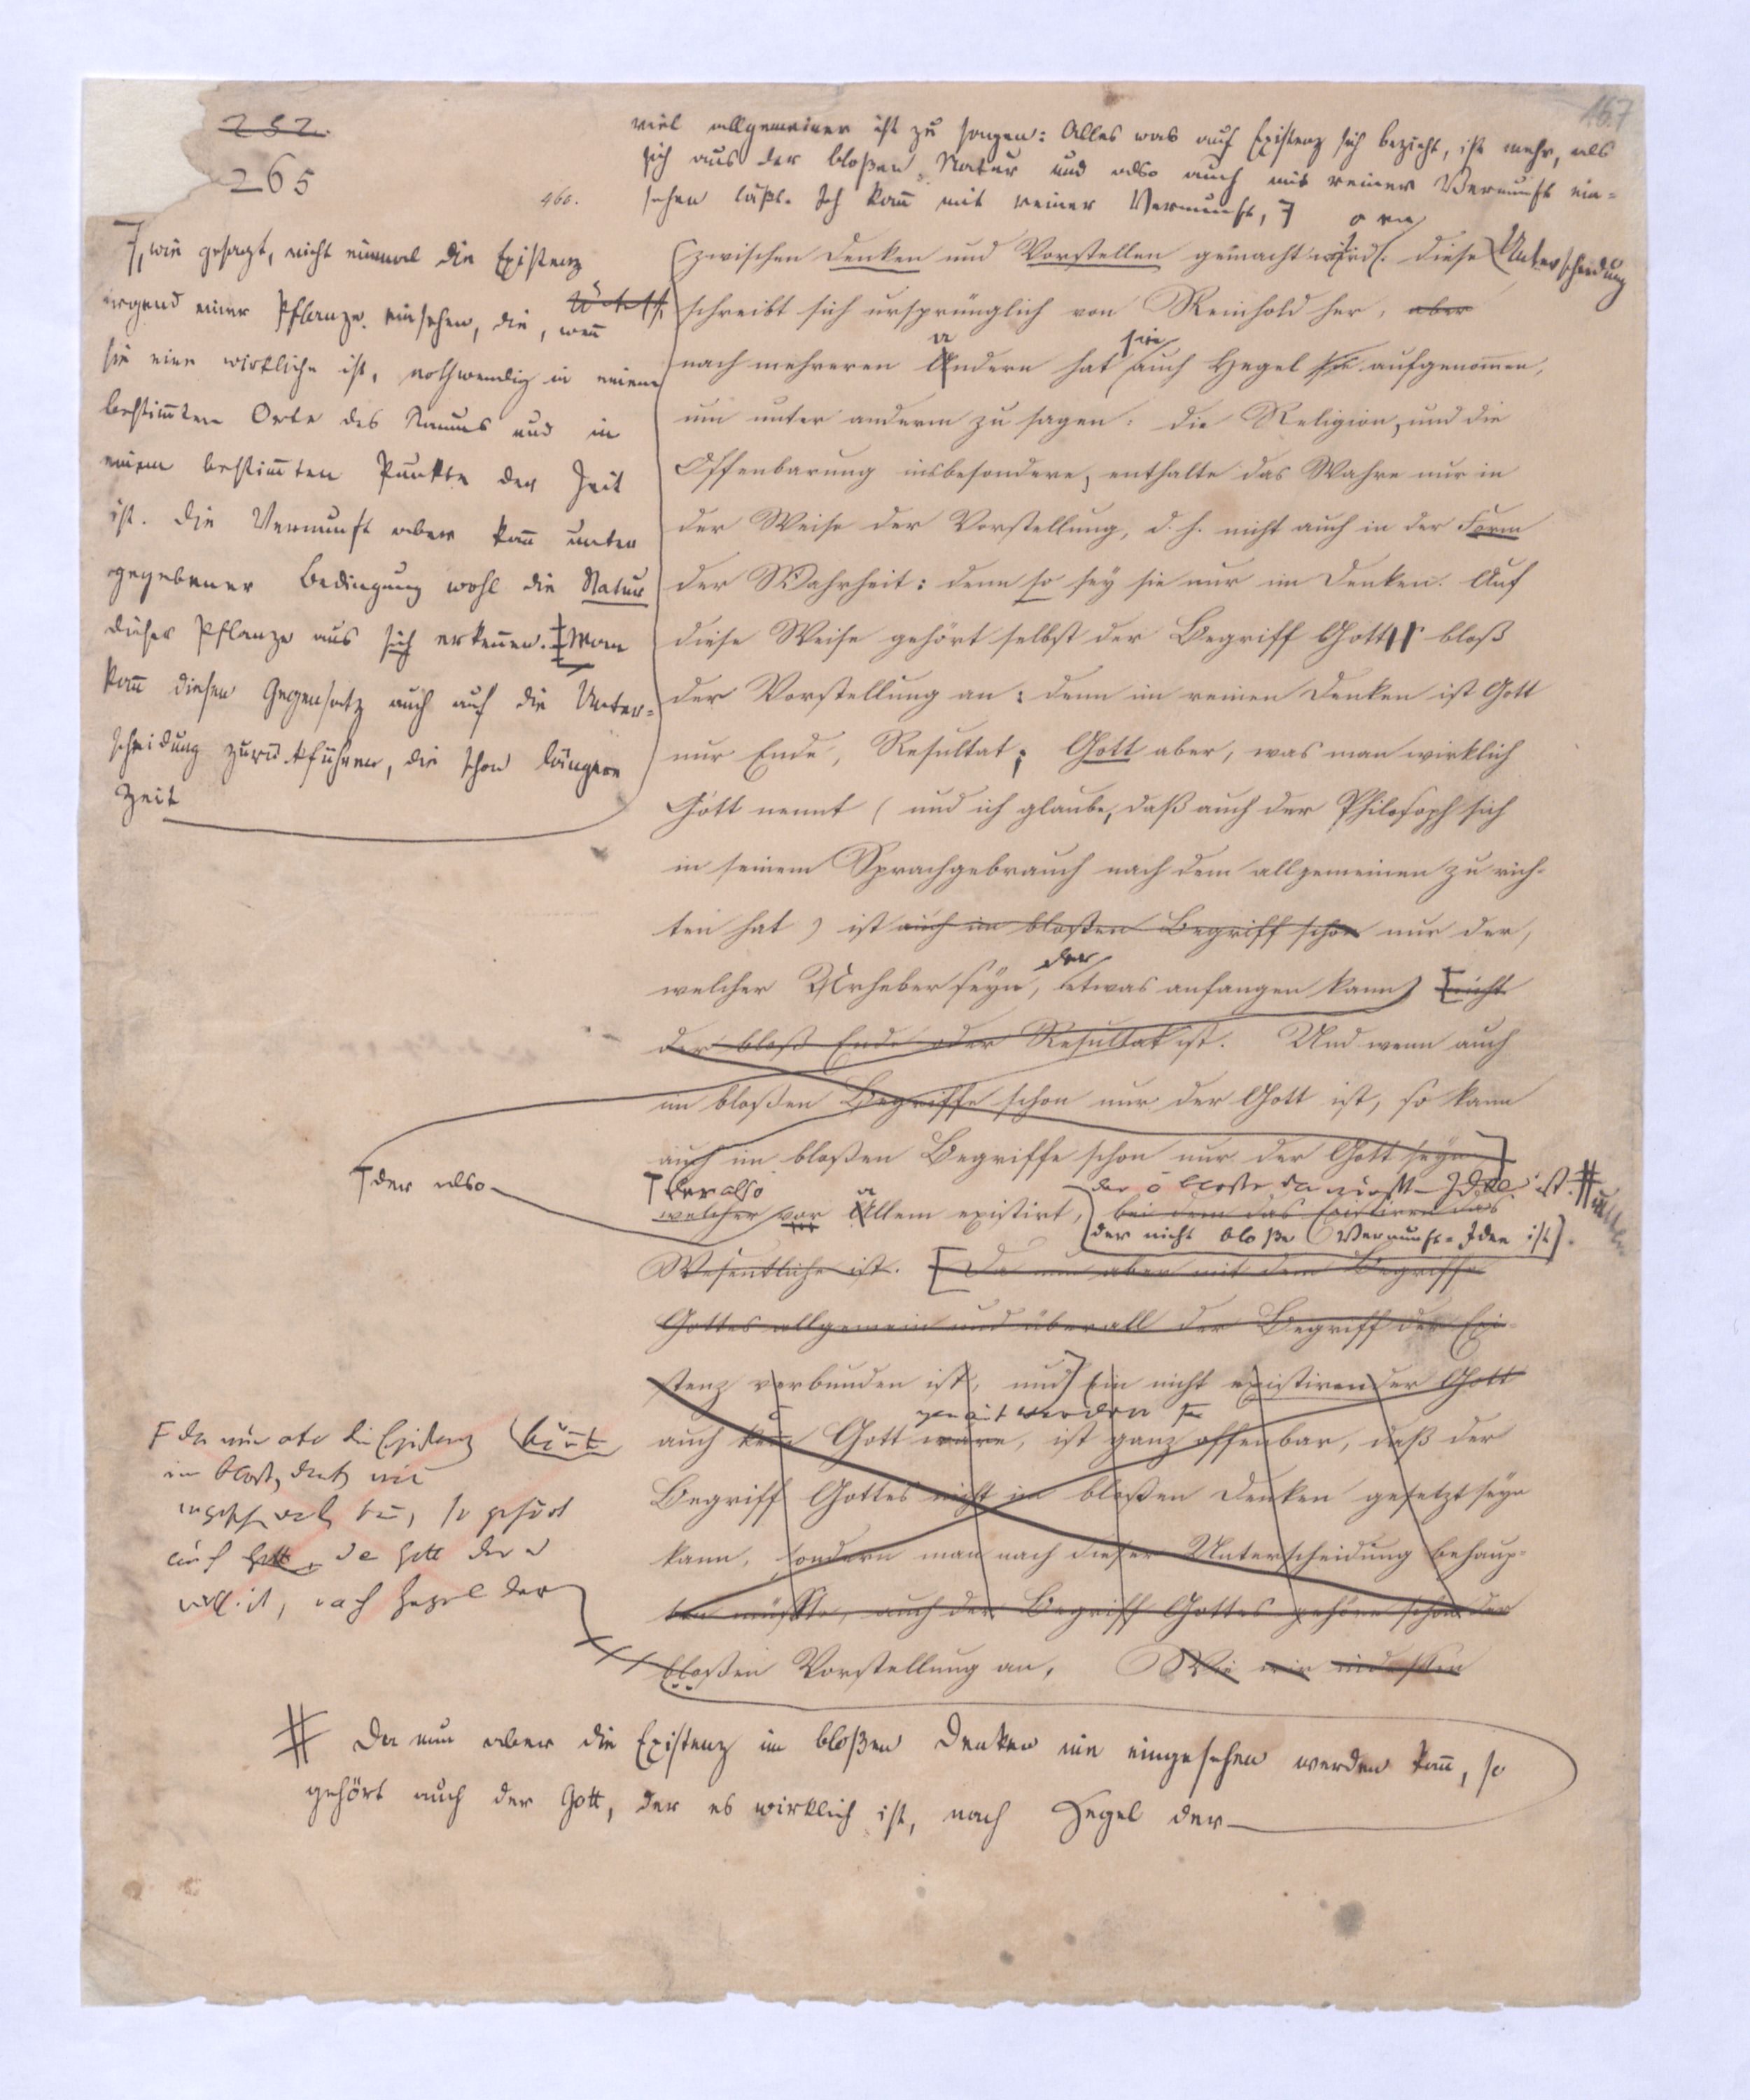 252.
265
167
466.
viel allgemeiner ist zu sagen: Alles was auf Existenz sich bezieht, ist mehr, als
sich aus der bloßen Natur und also auch mit reiner Vernunft ein-
sehen läßt. Ich kañ mit reiner Vernunft,
, wie gesagt, nicht einmal die Existenz
irgend einer Pflanze einsehen, die, weñ
sie eine wirkliche ist, nothwendig in einem
bestim̄ten Orte des Raums und in
einem bestim̄ten Punkte der Zeit
ist. Die Vernunft aber kañ unter
gegebener Bedingung wohl die Natur
dieser Pflanze aus sich erkeñen. Man
kañ diesen Gegensatz auch auf die Unter-
scheidung zurükführen, die schon längere
Zeit
zwischen Denken und Vorstellen gemacht wird. Diese Unterscheidung
schreibt sich ursprünglich von Reinhold her, aber
nach mehreren andern hat sie auch Hegel sie aufgenom̄en,
um unter anderm zu sagen: die Religion, und die
Offenbarung insbesondere, enthalte das Wahre nur in
der Weise der Vorstellung, d. h. nicht auch in der Form
der Wahrheit: denn so sey sie nur im Denken. Auf
diese Weise gehört selbst der Begriff Gott bloß
der Vorstellung an: denn im reinen Denken ist Gott
nur Ende, Resultat; Gott aber, was man wirklich
Gott nennt (und ich glaube, daß auch der Philosoph sich
in seinem Sprachgebrauch nach dem allgemeinen zu rich-
ten hat) ist auch im bloßen Begriff schon nur der,
welcher Urheber seyn, der etwas anfangen kann, nicht
der bloß Ende oder Resultat ist. Und wenn auch
im bloßen Begriffe schon nur der Gott ist, so kann
auch im bloßen Begriffe schon nur der Gott seyn
der also
der also
welcher vor allem existirt, bei dem das Existiren das
der nicht bloße Vernunft-Idee ist.
Wesentliche ist. Da nun aber mit dem Begriffe
Gottes allgemein und überall der Begriff der Exi-
stenz verbunden ist, und ein nicht existirender Gott
auch kein Gott wäre, ist ganz offenbar, daß der
Begriff Gottes nicht im bloßen Denken gesetzt seyn
kann, sondern man nach dieser Unterscheidung behaup-
ten müßte, auch der Begriff Gottes gehöre schon der
bloßen Vorstellung an. Wie wir indessen
da nun die Existenz
nach Hegel der
Da nun aber die Existenz im bloßen Denken nie eingesehen werden kañ, so
gehört auch der Gott, der es wirklich ist, nach Hegel der